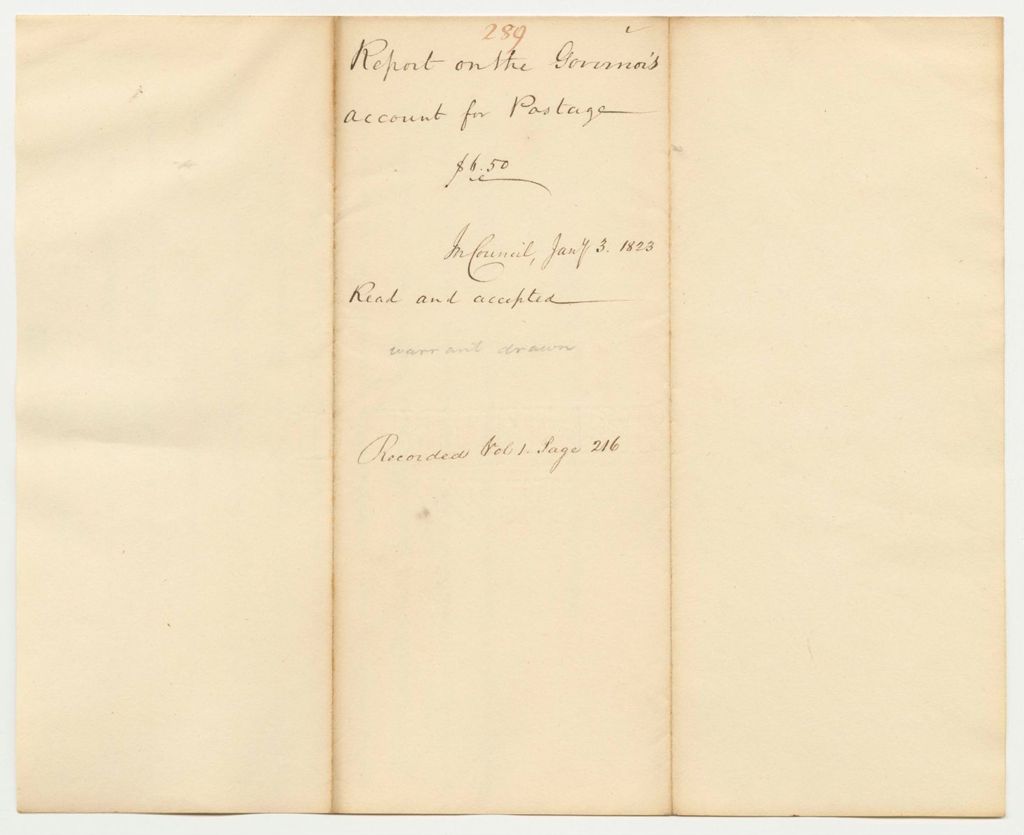 289
Report on the Governor's
account for Postage
$6.50
In Council, Jany 3. 1823
Read and accepted
warrant drawn
Recorded Vol 1. Page 216